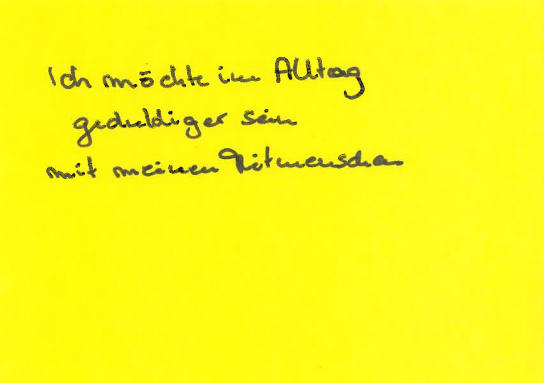 Ich möchte im Alltag
geduldiger sein
mit meinen Mitmenschen